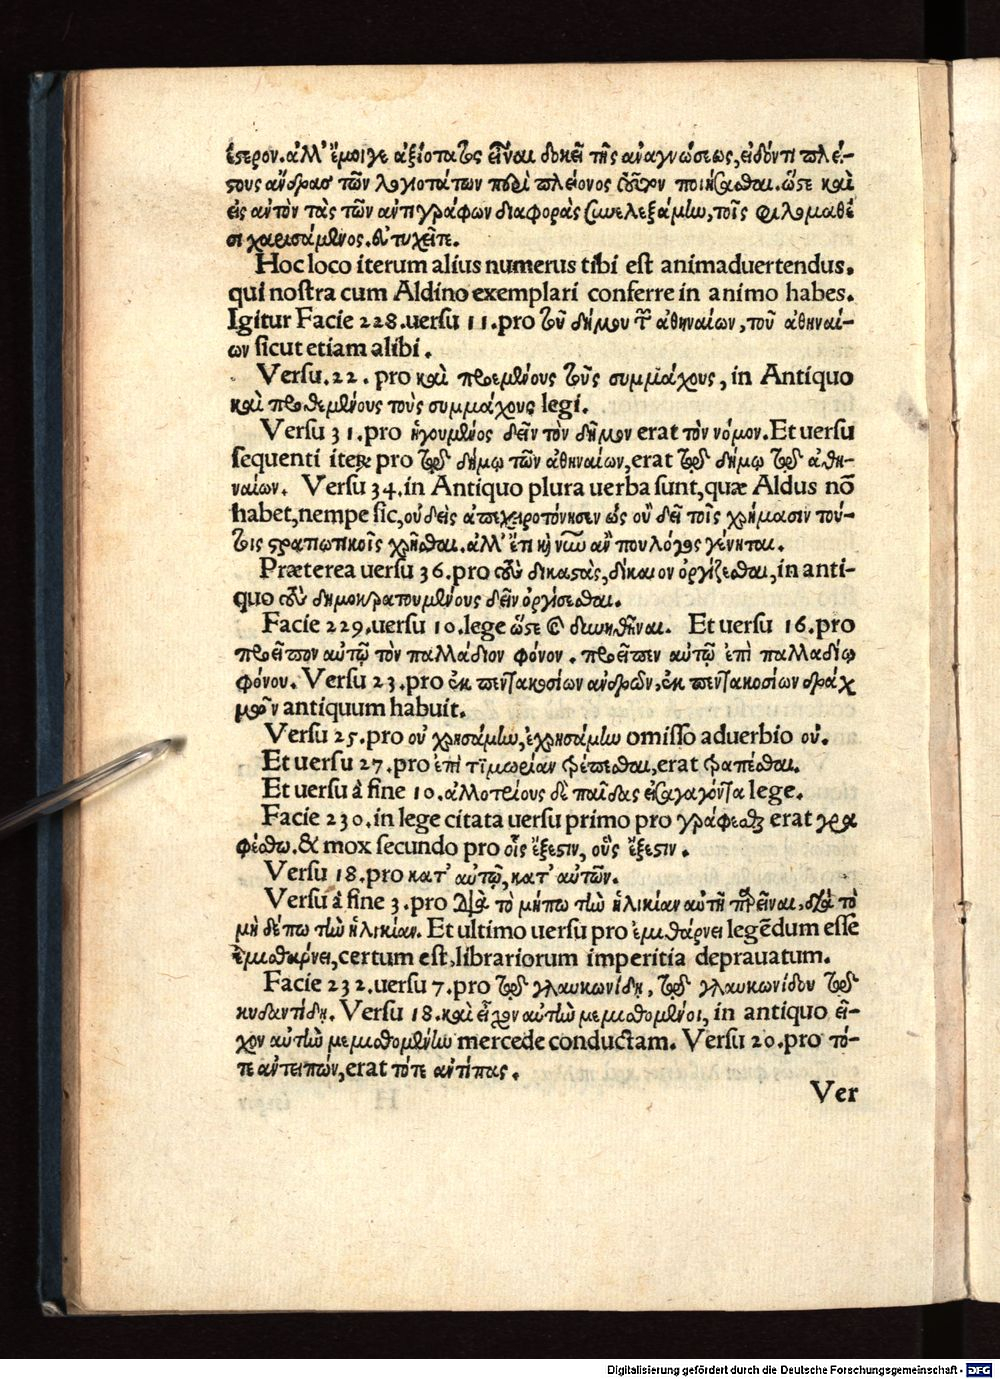 ἕτερον. ἀλλ' ἔμοιγε ἀξιώτατος εἶναι δοκεῖ τῆς ἀναγνώσεως, εἰδόντι πλεί-
στους ἄνδρας τῶν λογιοτάτων περὶ πλείονος αὐτὸν ποιήσασθαι. ὥστε καὶ
εἰς αὐτὸν τὰς τῶν ἀντιγράφων διαφορὰς συνελεξάμην, τοῖς φιλομαθέ
σι χαρισάμενος. εὐτυχεῖτε.
Hoc loco iterum alius numerus tibi est animaduertendus.
qui nostra cum Aldino exemplari conferre in animo habes.
Igitur Facie 228. uersu 11. pro τοῦ δήμου τῶν ἀθηναίων, τοῦ ἀθηναί-
ων sicut etiam alibi.
Versu. 22. pro καὶ προεμένους τοὺς συμμάχους, in Antiquo
καὶ προθεμένους τοὺς συμμάχους legi.
Versu 31. pro ἡγουμένος δεῖν τὸν δῆμον erat τὸν νόμον. Et uersu
sequenti iteꝝ pro τῷ δήμῳ τῶν ἀθηναίων, erat τῷ δήμῳ τῷ ἀθη-
ναίων. Versu 34. in Antiquo plura uerba sunt, quæ Aldus nõ
habet, nempe sic, οὐδεὶς ἀπεχειροτόνησεν ὡς οὐ δεῖ τοῖς χρήμασιν τού-
τοις στρατιωτικοῖς χρῆσθαι. ἀλλ' ἔτι καὶ νῦν ἄν που λόγος γένηται.
Præterea uersu 36. pro τοὺς δικαστὰς, δίκαιον ὀργίζεσθαι, in anti-
quo τοὺς δημοκρατουμένους δεῖν ὀργίσεσθαι.
Facie 229. uersu 10. lege ὥστε διωχθῆναι. Et uersu 16. pro
προεῖπον αὐτῷ τὸν παλλάδιον φόνον. προεῖπεν αὐτῷ ἐπὶ παλλαδίῳ
φόνου. Versu 23. pro ἐκ πεντακοσίων ἀνδρῶν, ἐκ πεντακοσίων δραχ
μῶν antiquum habuit.
Versu 25. pro οὐ χρησάμην, ἐχρησάμην omisso aduerbio οὐ.
Et uersu 27. pro ἐπὶ τιμωρίαν τρέπεσθαι, erat τραπέσθαι.
Et uersu â fine 10. ἀλλοτρίους δὲ παῖδας εἰσαγαγόντα lege.
Facie 230. in lege citata uersu primo pro γράφεσθαι erat γρα
φέσθω. & mox secundo pro οἷς ἔξεστιν, οὓς ἔξεστιν.
Versu 18. pro κατ' αὐτῷ, κατ' αὐτῶν.
Versu â fine 3. pro Διὰ τὸ μήπω τὴν ἡλικίαν αὐτῇ παρεῖναι, διὰ τὸ
μὴ δέπω τὴν ἡλικίαν. Et ultimo uersu pro ἐμισθάρνει legẽdum esse
ἐμισθάρνει, certum est, librariorum imperitia deprauatum.
Facie 232. uersu 7. pro τῷ γλαυκωνίδῃ, τῷ γλαυκωνίδου τῷ
κυδαντίδῃ. Versu 18. καὶ εἶχον αὐτὴν μεμισθομένοι, in antiquo εἶ-
χον αὐτὴν μεμισθομένην mercede conductam. Versu 20. pro τό-
τε ἀντειπών, erat τότε ἀντίπας.
Ver
Digitalisierung gefördert durch die Deutsche Forschungsgemeinschaft - DFG